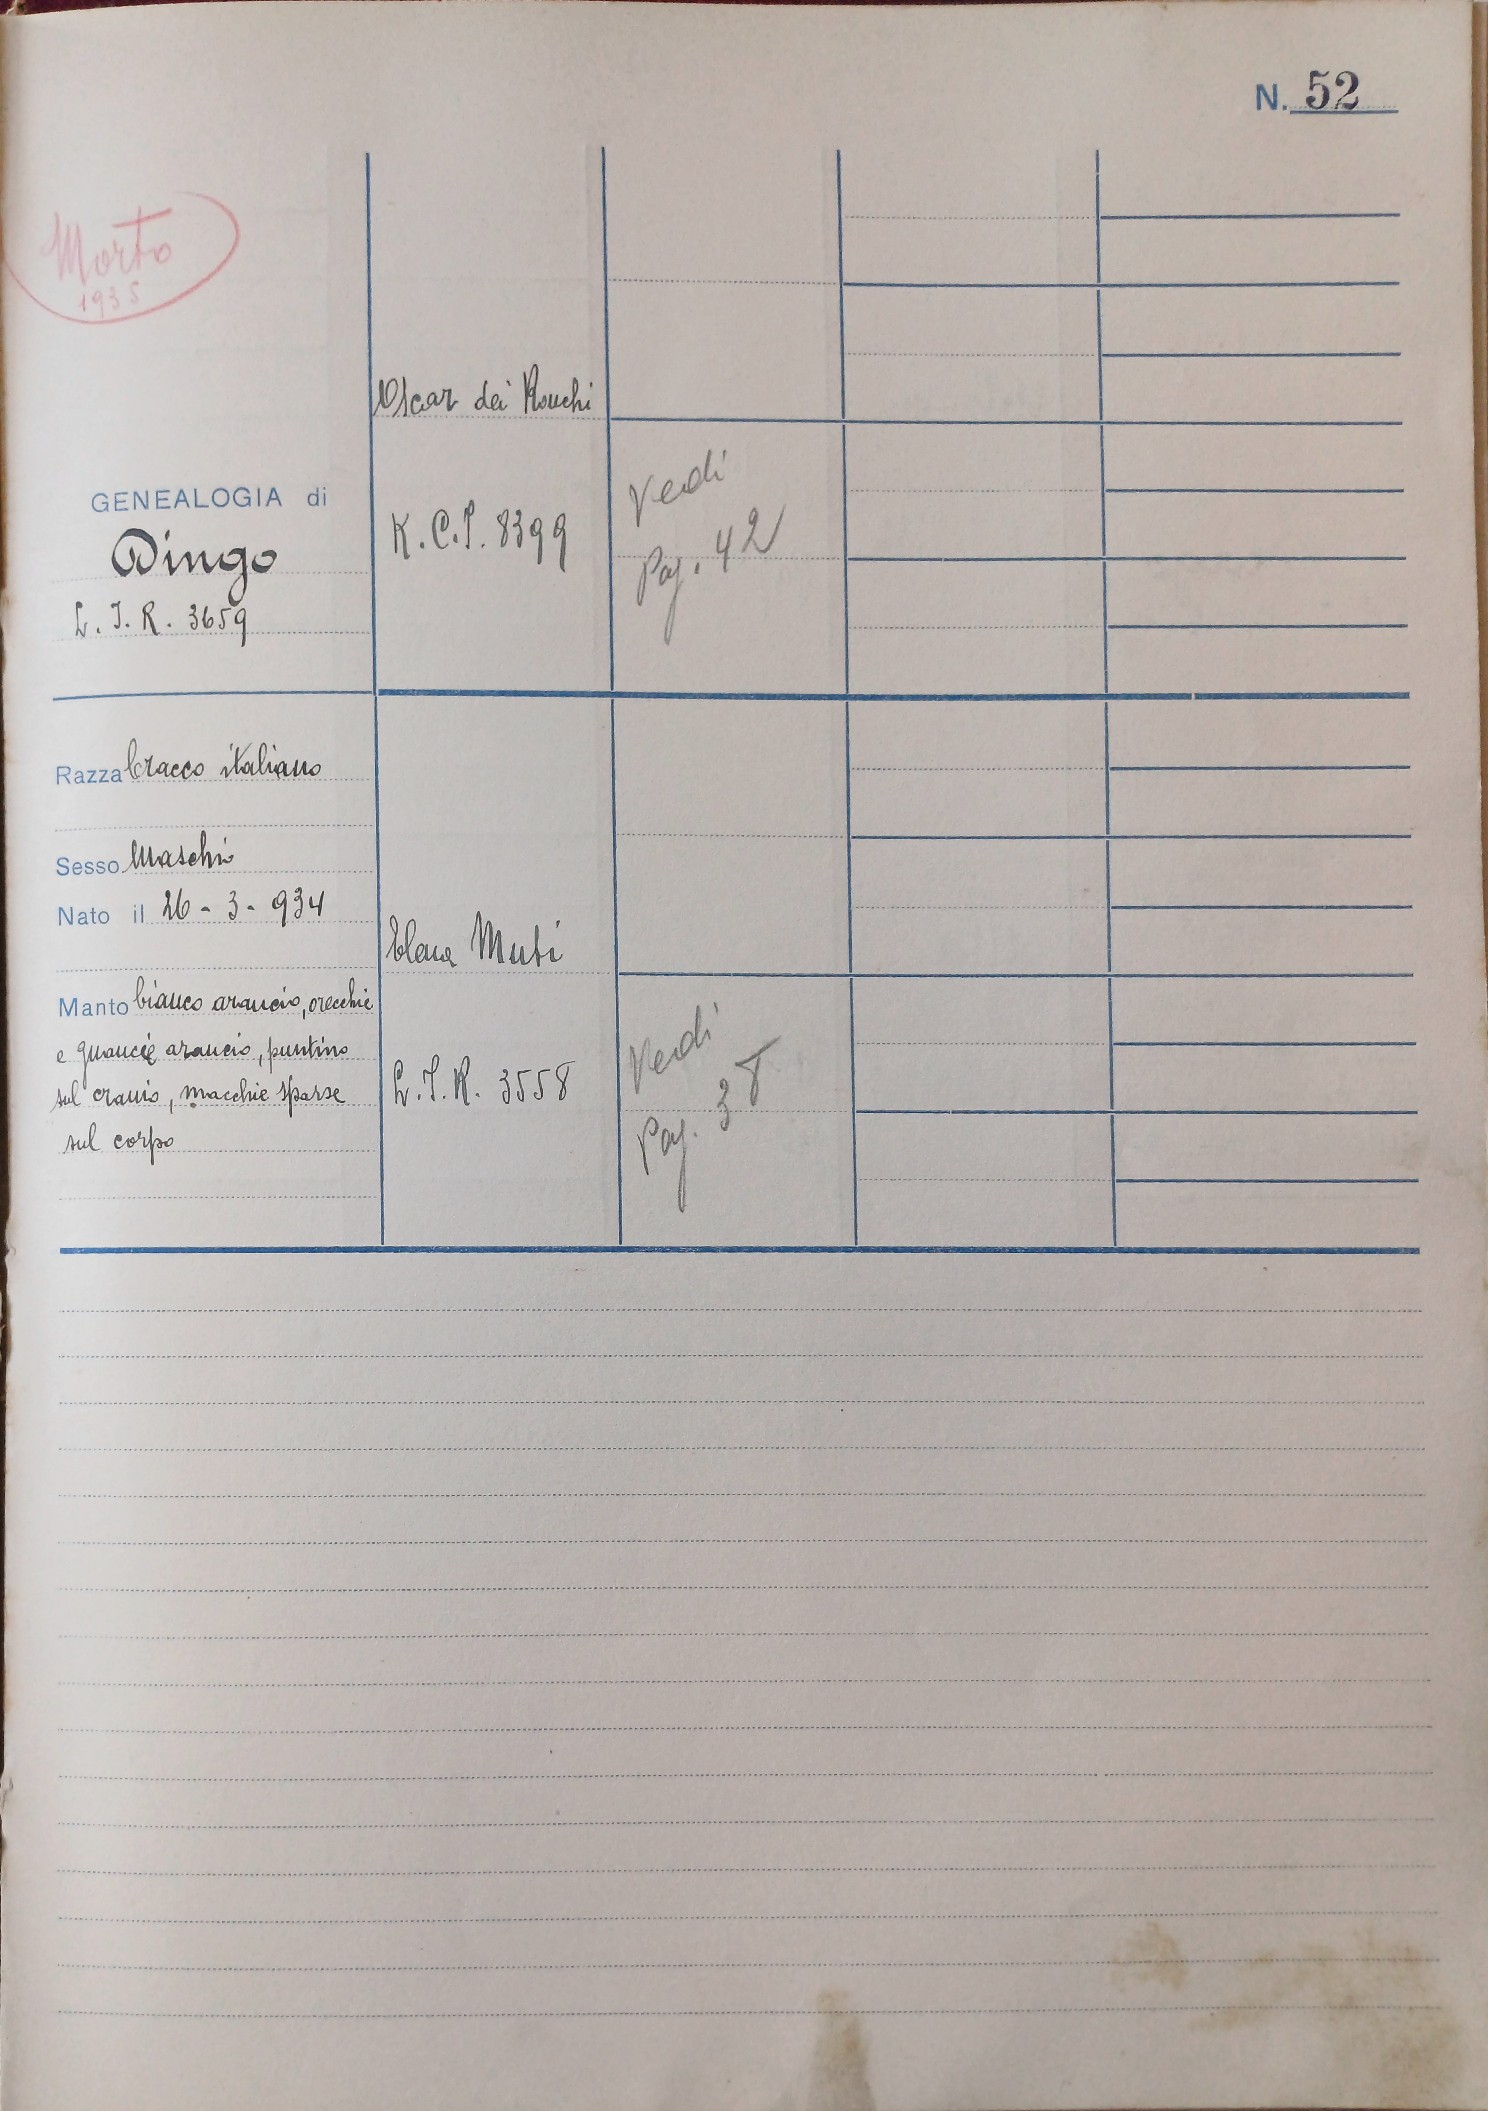 N. 52
Morto
1935
GENEALOGIA di
Dingo
L. I. R. 3659
Razza bracco italiano
Sesso Maschio
Nato il 26 - 3 - 934
Manto bianco arancio, orecchie
e guancie arancio, puntino
sul cranio, macchie sparse
sul corpo
Oscar dei Ronchi
K. C. I. 8399
Vedi
Pag. 42
Elena Muti
L. I. R. 3558
Vedi
Pag. 38